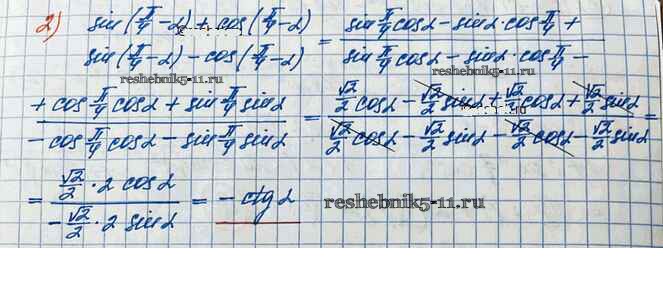 2) sin(π/4 - α) + cos(π/4 - α) / sin(π/4 - α) - cos(π/4 - α) = sin π/4 cos α - sin α · cos π/4 + / sin π/4 cos α - sin α · cos π/4 -
reshebnik5-11.ru
reshebnik5-11.ru
+ cos π/4 cos α + sin π/4 sin α / - cos π/4 cos α - sin π/4 sin α = √2/2 cos α - √2/2 sin α + √2/2 cos α + √2/2 sin α / √2/2 cos α - √2/2 sin α - √2/2 cos α - √2/2 sin α =
= √2/2 · 2 cos α / -√2/2 · 2 sin α = - ctg α
reshebnik5-11.ru